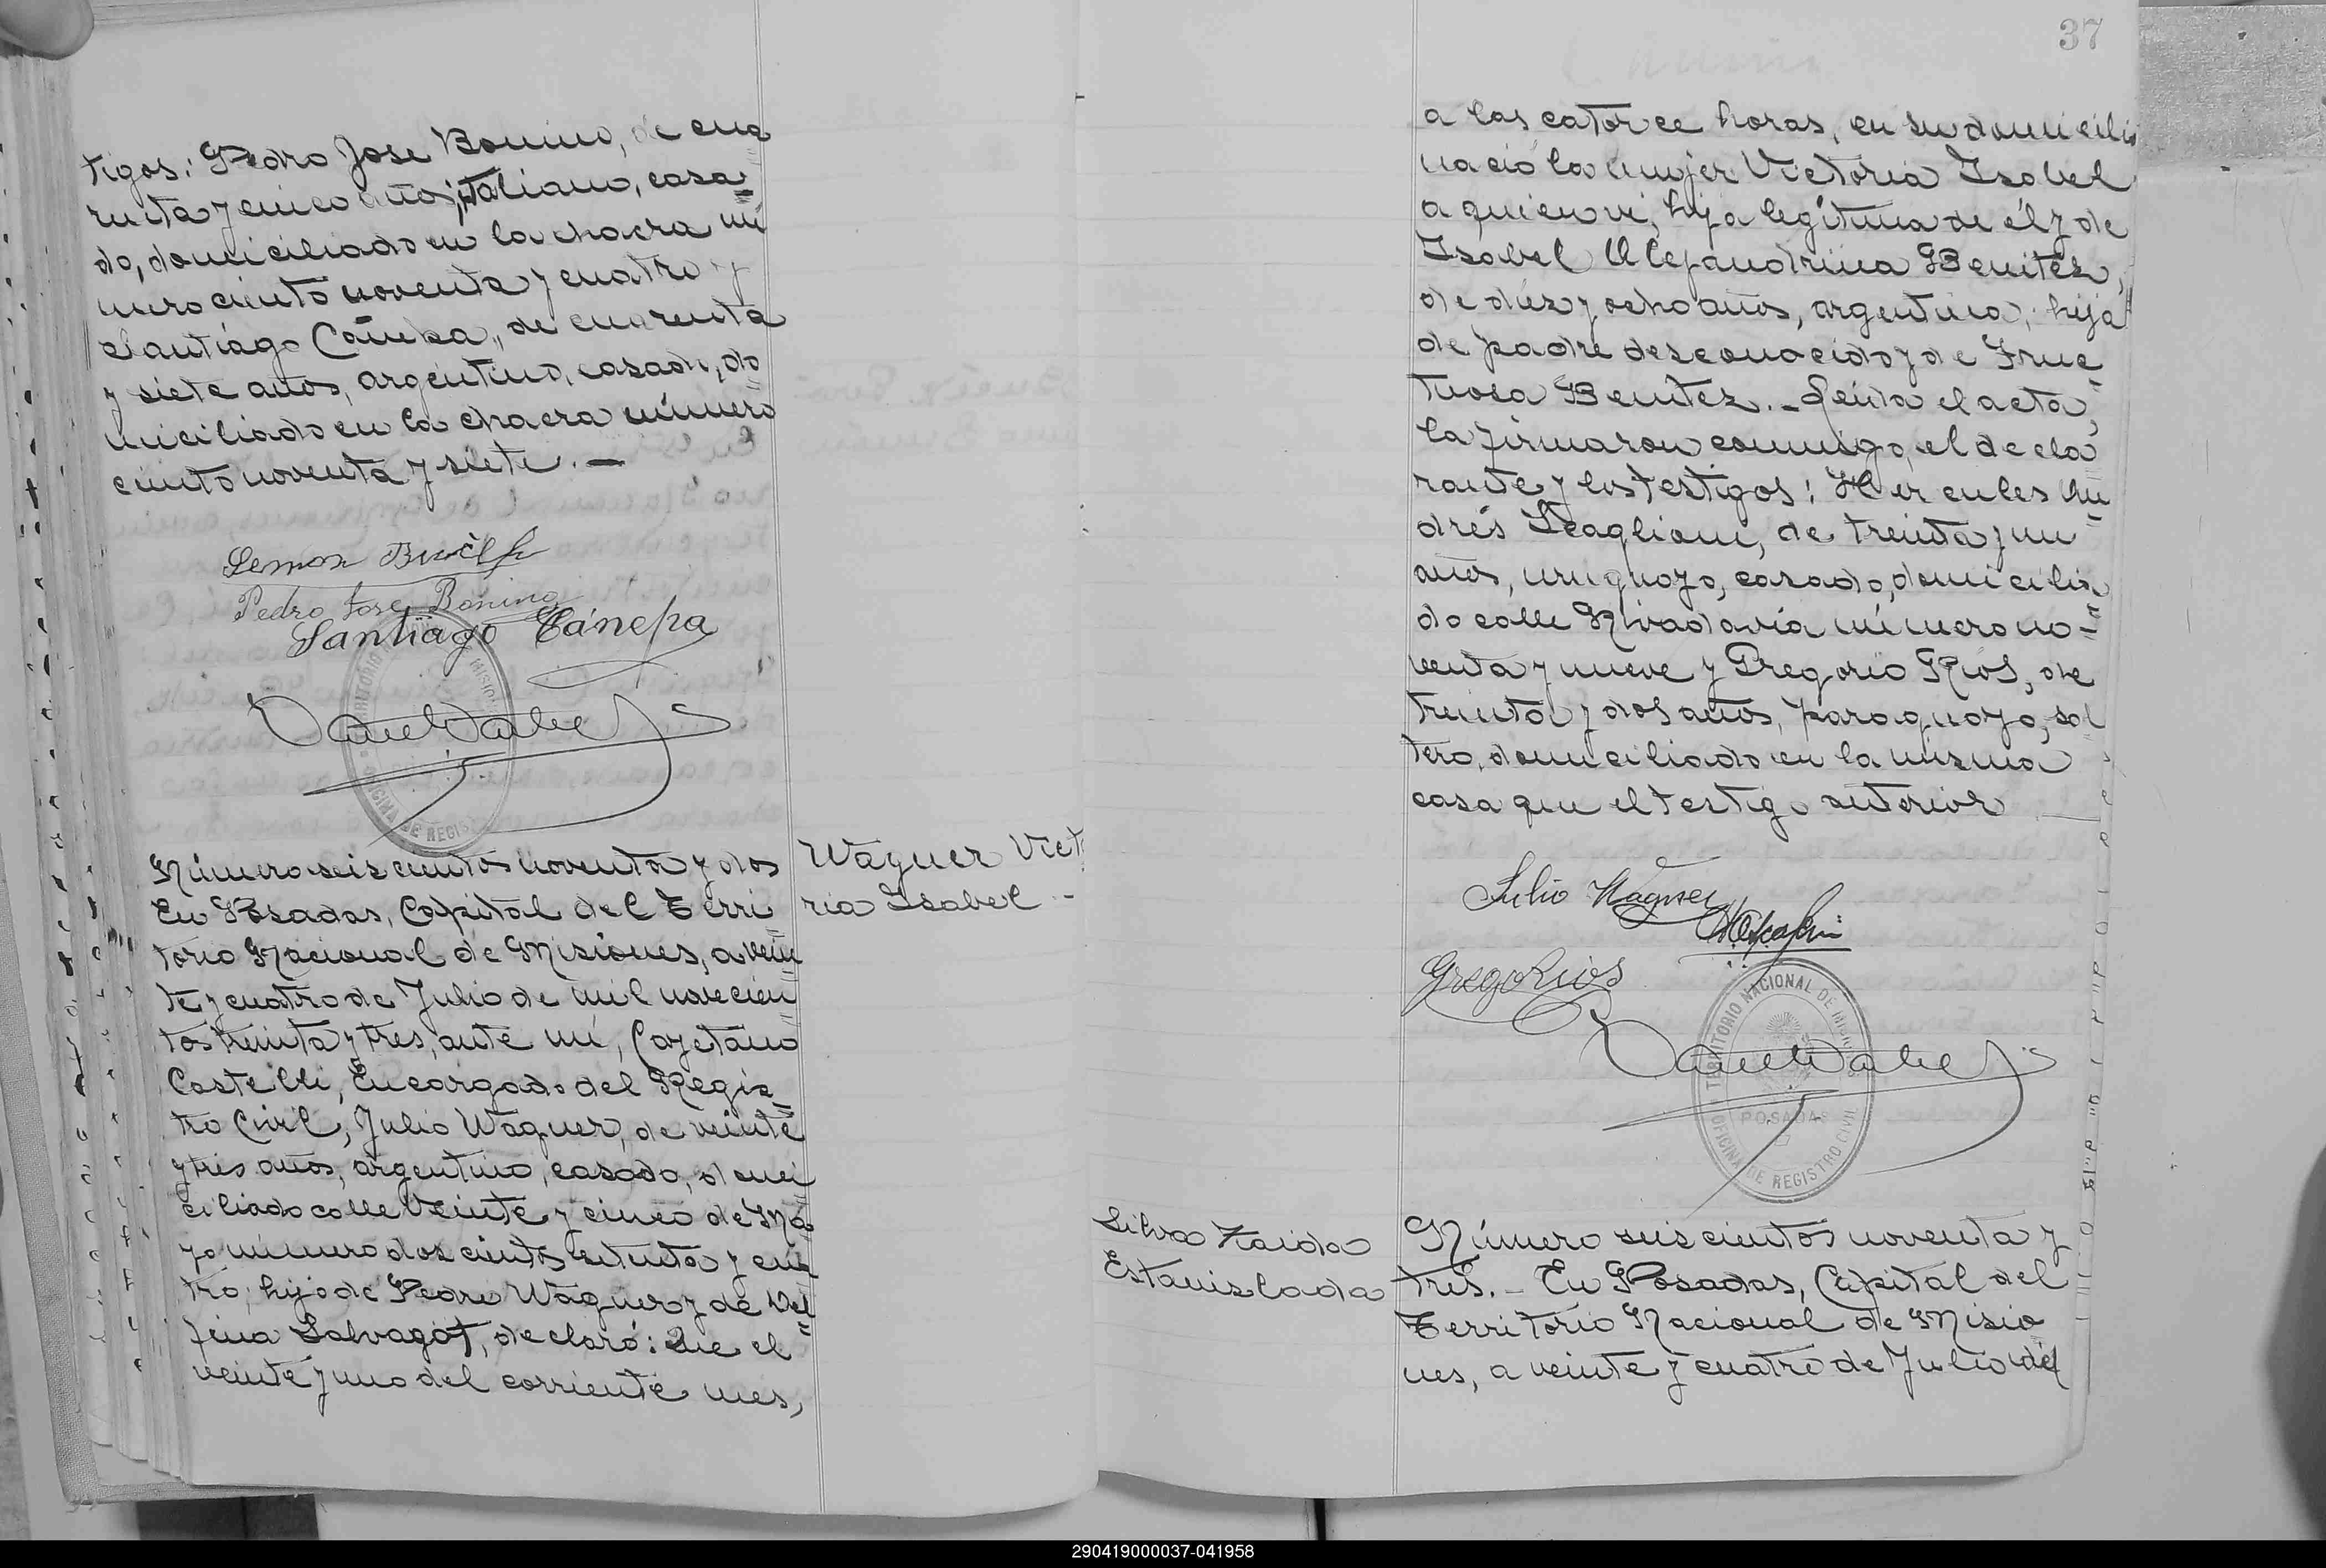 tigos: Pedro Jose Bonino, de cua
renta y cinco años, italiano, casa=
do, domiciliado en la chacra nú
mero ciento noventa y cuatro y
Santiago Cánepa, de cuarenta
y siete años, argentino, casado, do
miciliado en la chacra número
ciento noventa y siete. —
Pedro Jose Bonino
Santiago Cánepa
Número seiscientos noventa y dos
En Posadas, Capital del Terri
torio Nacional de Misiones, a vein
te y cuatro de Julio de mil novecien
tos treinta y tres, ante mi, Cayetano
Castelli, Encargado del Regis=
tro Civil, Julio Wagner, de veinte
y tres años, argentino, casado, domi
ciliado calle Veinte y cinco de Ma
yo número doscientos setenta y cua
tro; hijo de Pedro Wagner y de Del=
fina Salvagot, declaró: Que el
veinte y uno del corriente mes,
Wagner Victo
ria Isabel -
37
a las catorce horas, en su domicilio
nació la mujer Victoria Isabel
a quien vi, hija legitima de él y de
Isabel Alejandrina Benitez,
de diez y ocho años, argentina, hija
de padre desconocido y de Fruc=
tuosa Benitez. - Leida el acta,
la firmaron conmigo, el decla=
rante y los testigos: Hercules An=
drés Scaglioni, de treinta y un
años, uruguayo, casado, domicilia=
do calle Rivadavia número no=
venta y nueve y Gregorio Rios, de
treinta y dos años, paraguayo, sol
tero, domiciliado en la misma
casa que el testigo anterior
Julio Wagner
Grego Rios
TERRITORIO NACIONAL DE MISIONES
POSADAS
OFICINA DE REGISTRO CIVIL
Silva Zaida
Estanislada
Número seiscientos noventa y
tres. - En Posadas, Capital del
Territorio Nacional de Misio
nes, a veinte y cuatro de Julio de
290419000037-041958